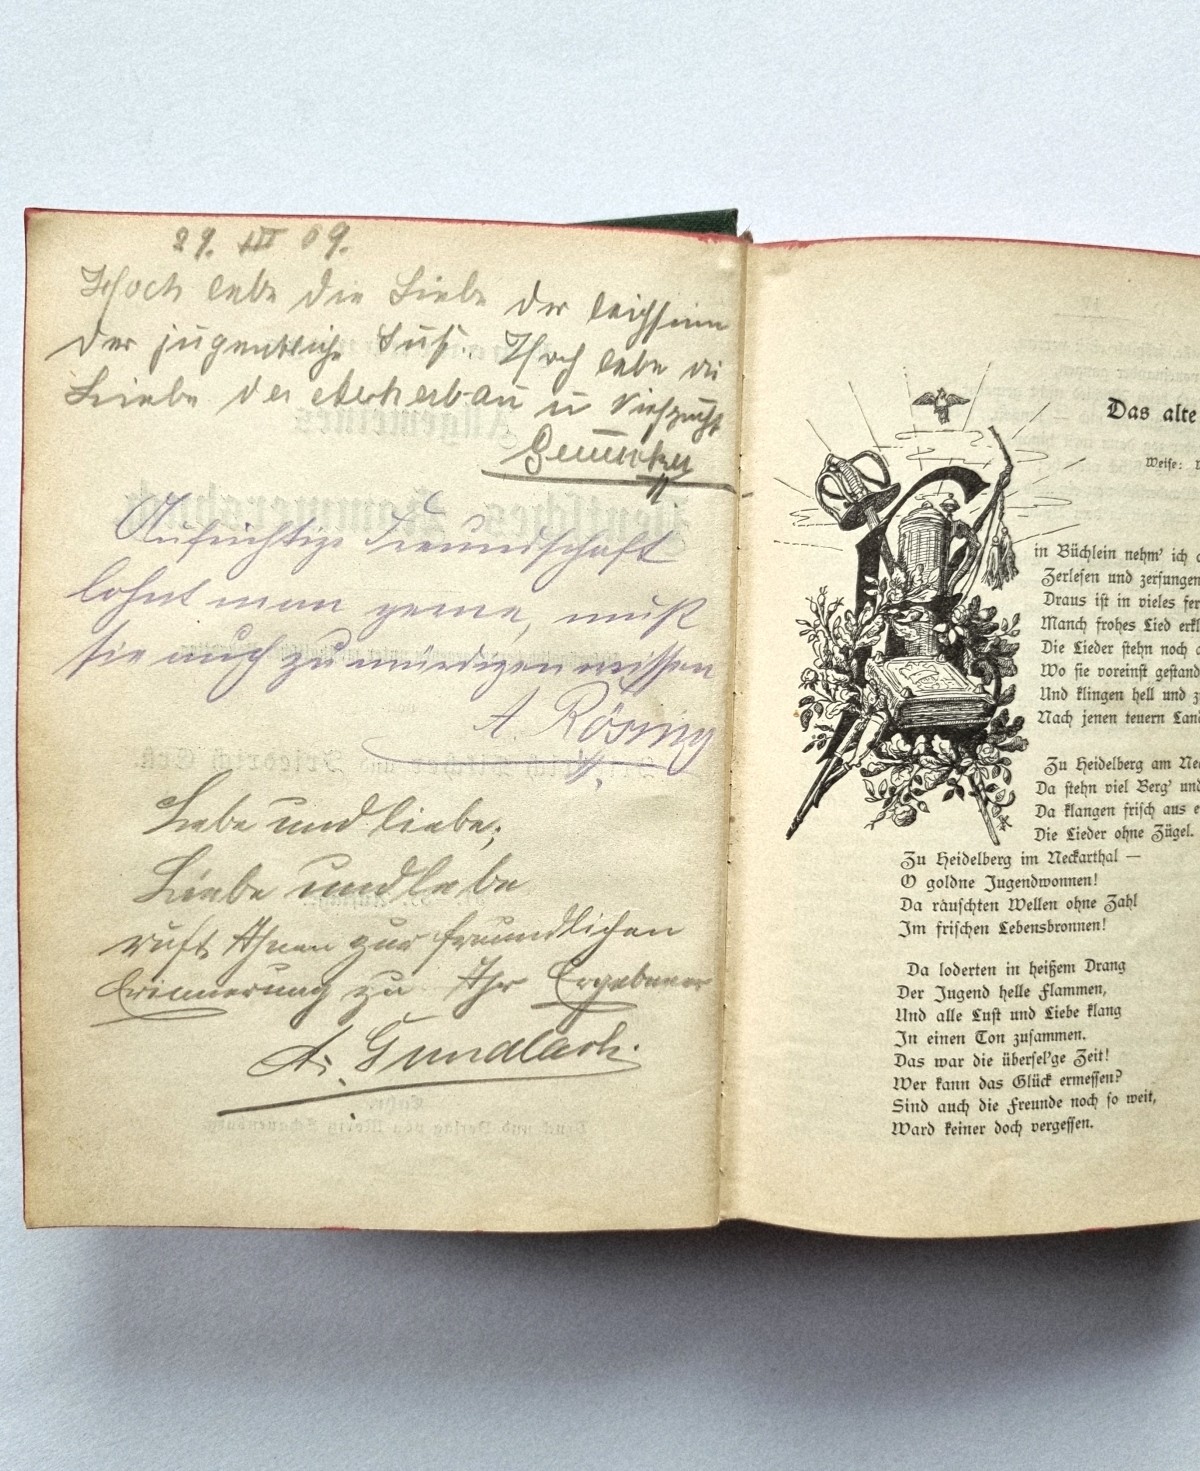 29. III 09.
Hoch lebe die Liebe der leichsinn
der jugentliche Kuß. Hoch lebe die
Liebe der Ackerbau u Viehzucht
Aufrichtige Freundschaft
lohnt man gerne, muß
sie auch zu würdigen wissen
A. Rösing
Lebe und liebe;
Liebe und lebe
ruft Ihnen zur freundlichen
Erinnerung zu Ihr Ergebener
A. Gundlach.
Das alte
Weise:
in Büchlein nehm' ich
Zerlesen und zersungen
Draus ist in vieles
Manch frohes Lied
Die Lieder stehn noch
Wo sie voreinst
Und klingen hell und
Nach jenen teuern
Zu Heidelberg am
Da stehn viel Berg' und
Da klangen frisch aus
Die Lieder ohne Zügel.
Zu Heidelberg im Neckarthal —
O goldne Jugendwonnen!
Da rauschten Wellen ohne Zahl
Im frischen Lebensbronnen!
Da loderten in heißem Drang
Der Jugend helle Flammen,
Und alle Lust und Liebe klang
In einen Ton zusammen.
Das war die übersel'ge Zeit!
Wer kann das Glück ermessen?
Sind auch die Freunde noch so weit,
Ward keiner doch vergessen.